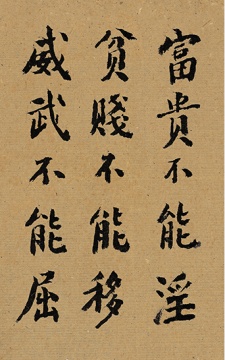 富贵不能淫
貧賤不能移
威武不能屈